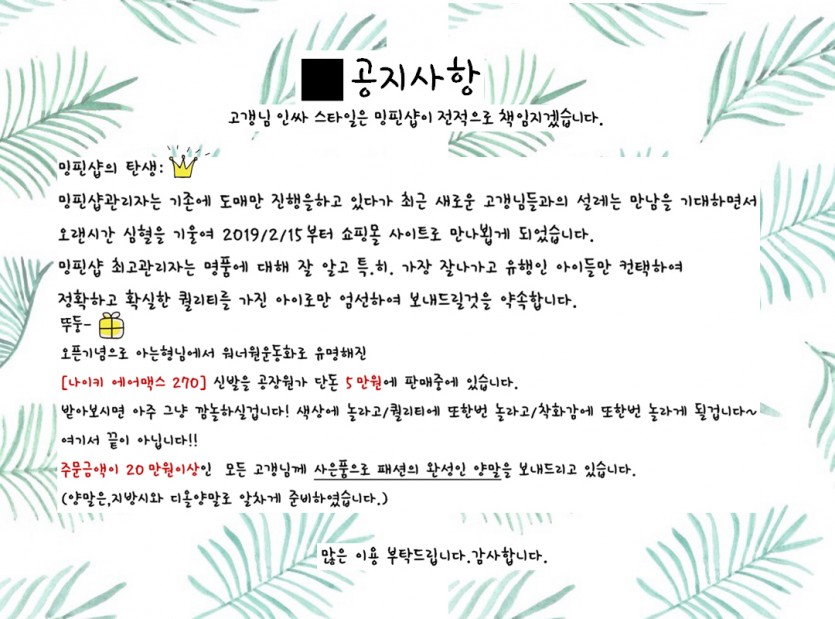 공지사항
고갱님 인싸 스타일은 밍핀샵이 전적으로 책임지겠습니다.
밍핀샵의 탄생:
밍핀샵관리자는 기존에 도매만 진행을하고 있다가 최근 새로운 고갱님들과의 설레는 만남을 기대하면서
오랜시간 심혈을 기울여 2019/2/15부터 쇼핑몰 사이트로 만나뵙게 되었습니다.
밍핀샵 최고관리자는 명품에 대해 잘 알고 특.히. 가장 잘나가고 유행인 아이들만 컨택하여
정확하고 확실한 퀄리티를 가진 아이로만 엄선하여 보내드릴것을 약속합니다.
뚜둥-
오픈기념으로 아는형님에서 워너원운동화로 유명해진
[나이키 에어맥스 270] 신발을 공장원가 단돈 5만원에 판매중에 있습니다.
받아보시면 아주 그냥 깜놀하실겁니다! 색상에 놀라고/퀄리티에 또한번 놀라고/착화감에 또한번 놀라게 될겁니다~
여기서 끝이 아닙니다!!
주문금액이 20만원이상인 모든 고갱님께 사은품으로 패션의 완성인 양말을 보내드리고 있습니다.
(양말은,지방시와 디올양말로 알차게 준비하였습니다.)
많은 이용 부탁드립니다.감사합니다.